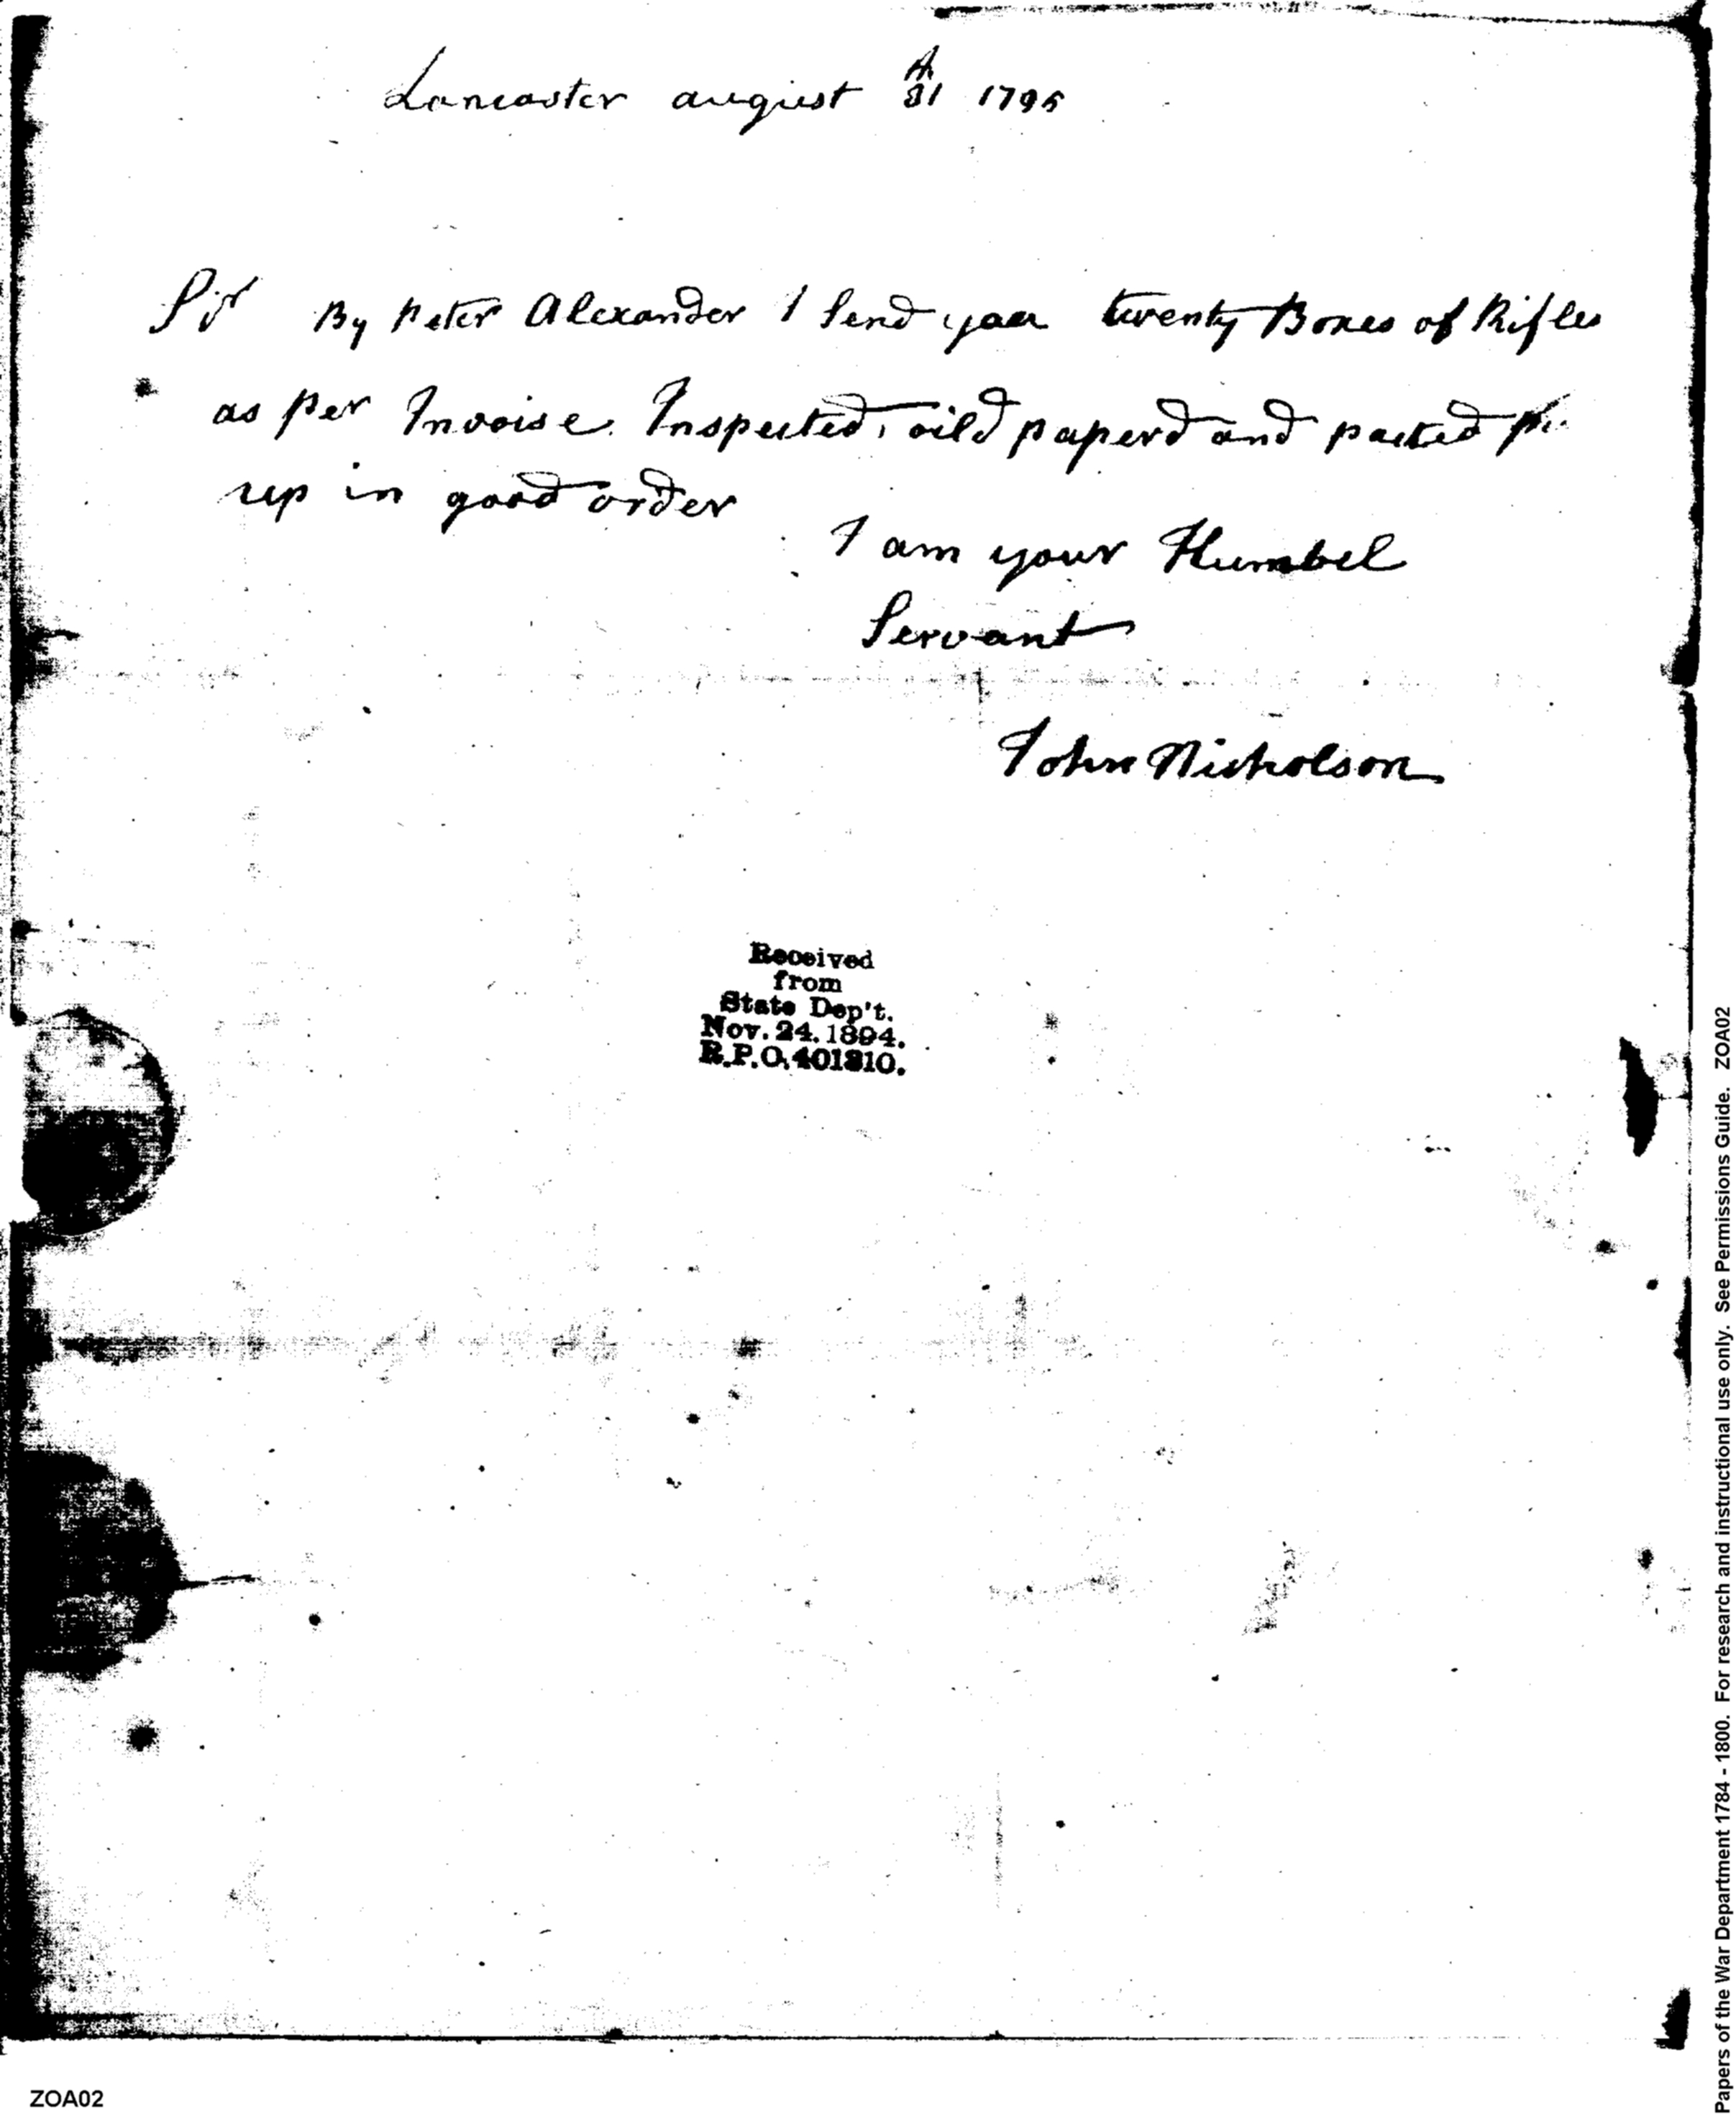 Lancaster august 31th 1795
Sir By Peter Alexander I Send you twenty Boxes of Rifles
as per Invoise. Inspected, oild paperd and packed
up in good order
I am your Humbel
Servant
John Nicholson
Received
from
State Dep't.
Nov. 24. 1894.
R.P.O. 401810.
Papers of the War Department 1784 - 1800. For research and instructional use only. See Permissions Guide. ZOA02
ZOA02